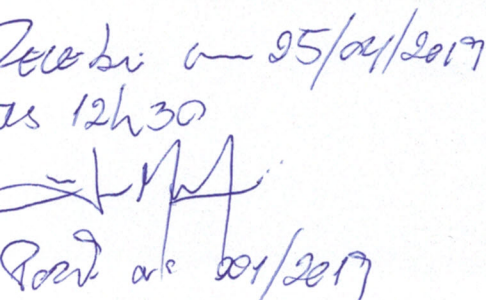 Recebi em 25/04/2019
as 12h30
Port. nº 001/2019